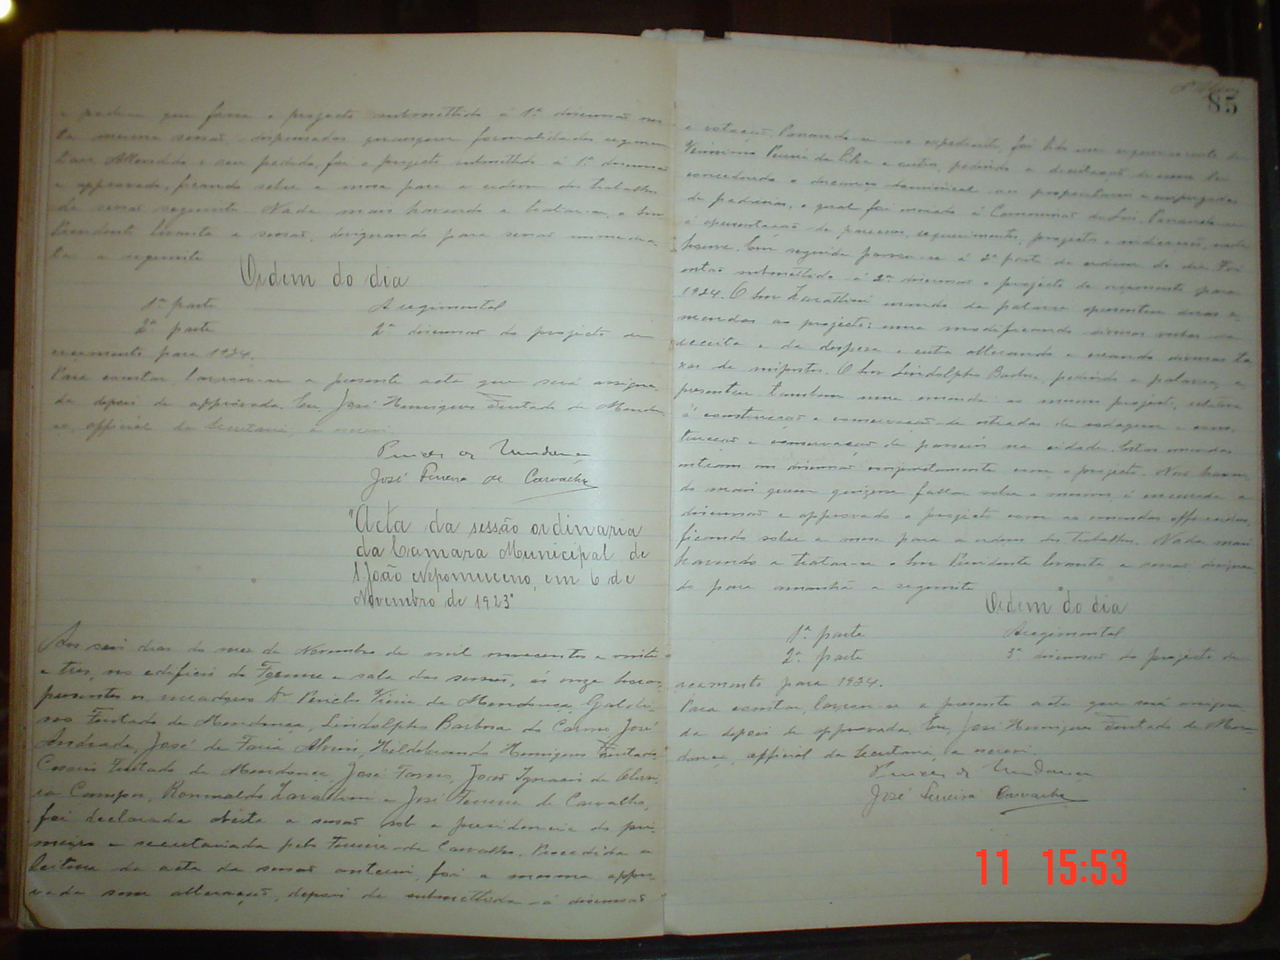 e pediu que fosse o projecto submettido á 1ª discussão nes
ta mesma sessão, dispensadas quaesquer formalidades regimen
taes. Attendido o seu pedido, foi o projecto submettido á 1ª discussão
e approvado, ficando sobre a mesa para a ordem dos trabalhos
da sessão seguinte. Nada mais havendo a tratar-se, o Snr
Presidente levanta a sessão, designando para sessão immedia
ta a seguinte
Ordem do dia
1ª parte Aregimental
2ª parte 2ª discussão do projecto de
orçamento para 1924.
Para constar, lavrou-se a presente acta que será assigna
da depois de approvada. Eu, José Henriques Furtado de Mendon
ça, official da Secretaria, a escrevi.
José Pereira de Carvalho
"Acta da sessão ordinaria
da Camara Municipal de
S. João Nepomuceno, em 6 de
Novembro de 1923"
Aos seis dias do mez de Novembro de mil novecentos e vinte
e tres, no edificio do Forum e sala das sessões, ás onze horas,
presentes os vereadores Dr Pericles Vieira de Mendonça,
Furtado de Mendonça, Lindolpho Barbosa do Carmo, José
Andrade, José de Faria Alvim, Hildebrando Henriques Furtado,
Cesario Furtado de Mendonça, José Ignacio de Olivei
ra Campos, Romualdo Zavattieri e José Pereira de Carvalho,
foi declarada aberta a sessão sob a presidencia do pri
meiro e secretariada pelo Pereira de Carvalho. Procedida a
leitura da acta da sessão anterior, foi a mesma appro
vada sem alteração, depois de submettida á discussão
85
e votação. Passando-se ao expediente, foi lido um requerimento de
da Silva e outros, pedindo a decretação de uma lei
concedendo o descanço dominical aos proprietarios e empregados
de padarias, o qual foi enviado á Commissão de Leis. Passando-se
á apresentação de pareceres, requerimentos, projectos e indicações, nada
houve. Em seguida passou-se á 2ª parte da ordem do dia. Foi
então submettido á 2ª discussão o projecto de orçamento para
1924. O Snr Zavattieri usando da palavra apresentou duas e
mendas ao projecto: uma modificando diversas verbas da
receita e da despeza e outra alterando e creando diversas ta
xas de impostos. O Snr Lindolpho Barbosa, pedindo a palavra, a
presentou tambem uma emenda ao mesmo projecto, relativa
á construcção e conservação de estradas de rodagem e cons
trucção e conservação de passeios na cidade. Estas emendas
entram em discussão conjuntamente com o projecto. Não haven
do mais quem quizesse fallar sobre o mesmo, é encerrada a
discussão e approvado o projecto com as emendas offerecidas,
ficando sobre a mesa para a ordem dos trabalhos. Nada mais
havendo a tratar-se o Snr Presidente levanta a sessão designan
do para amanhã a seguinte
Ordem do dia
1ª parte Aregimental
2ª parte 3ª discussão do projecto de or
çamento para 1924.
Para constar, lavrou-se a presente acta que será assigna
da depois de approvada. Eu, José Henriques Furtado de Men
donça, official da Secretaria, a escrevi.
José Pereira Carvalho
11 15:53